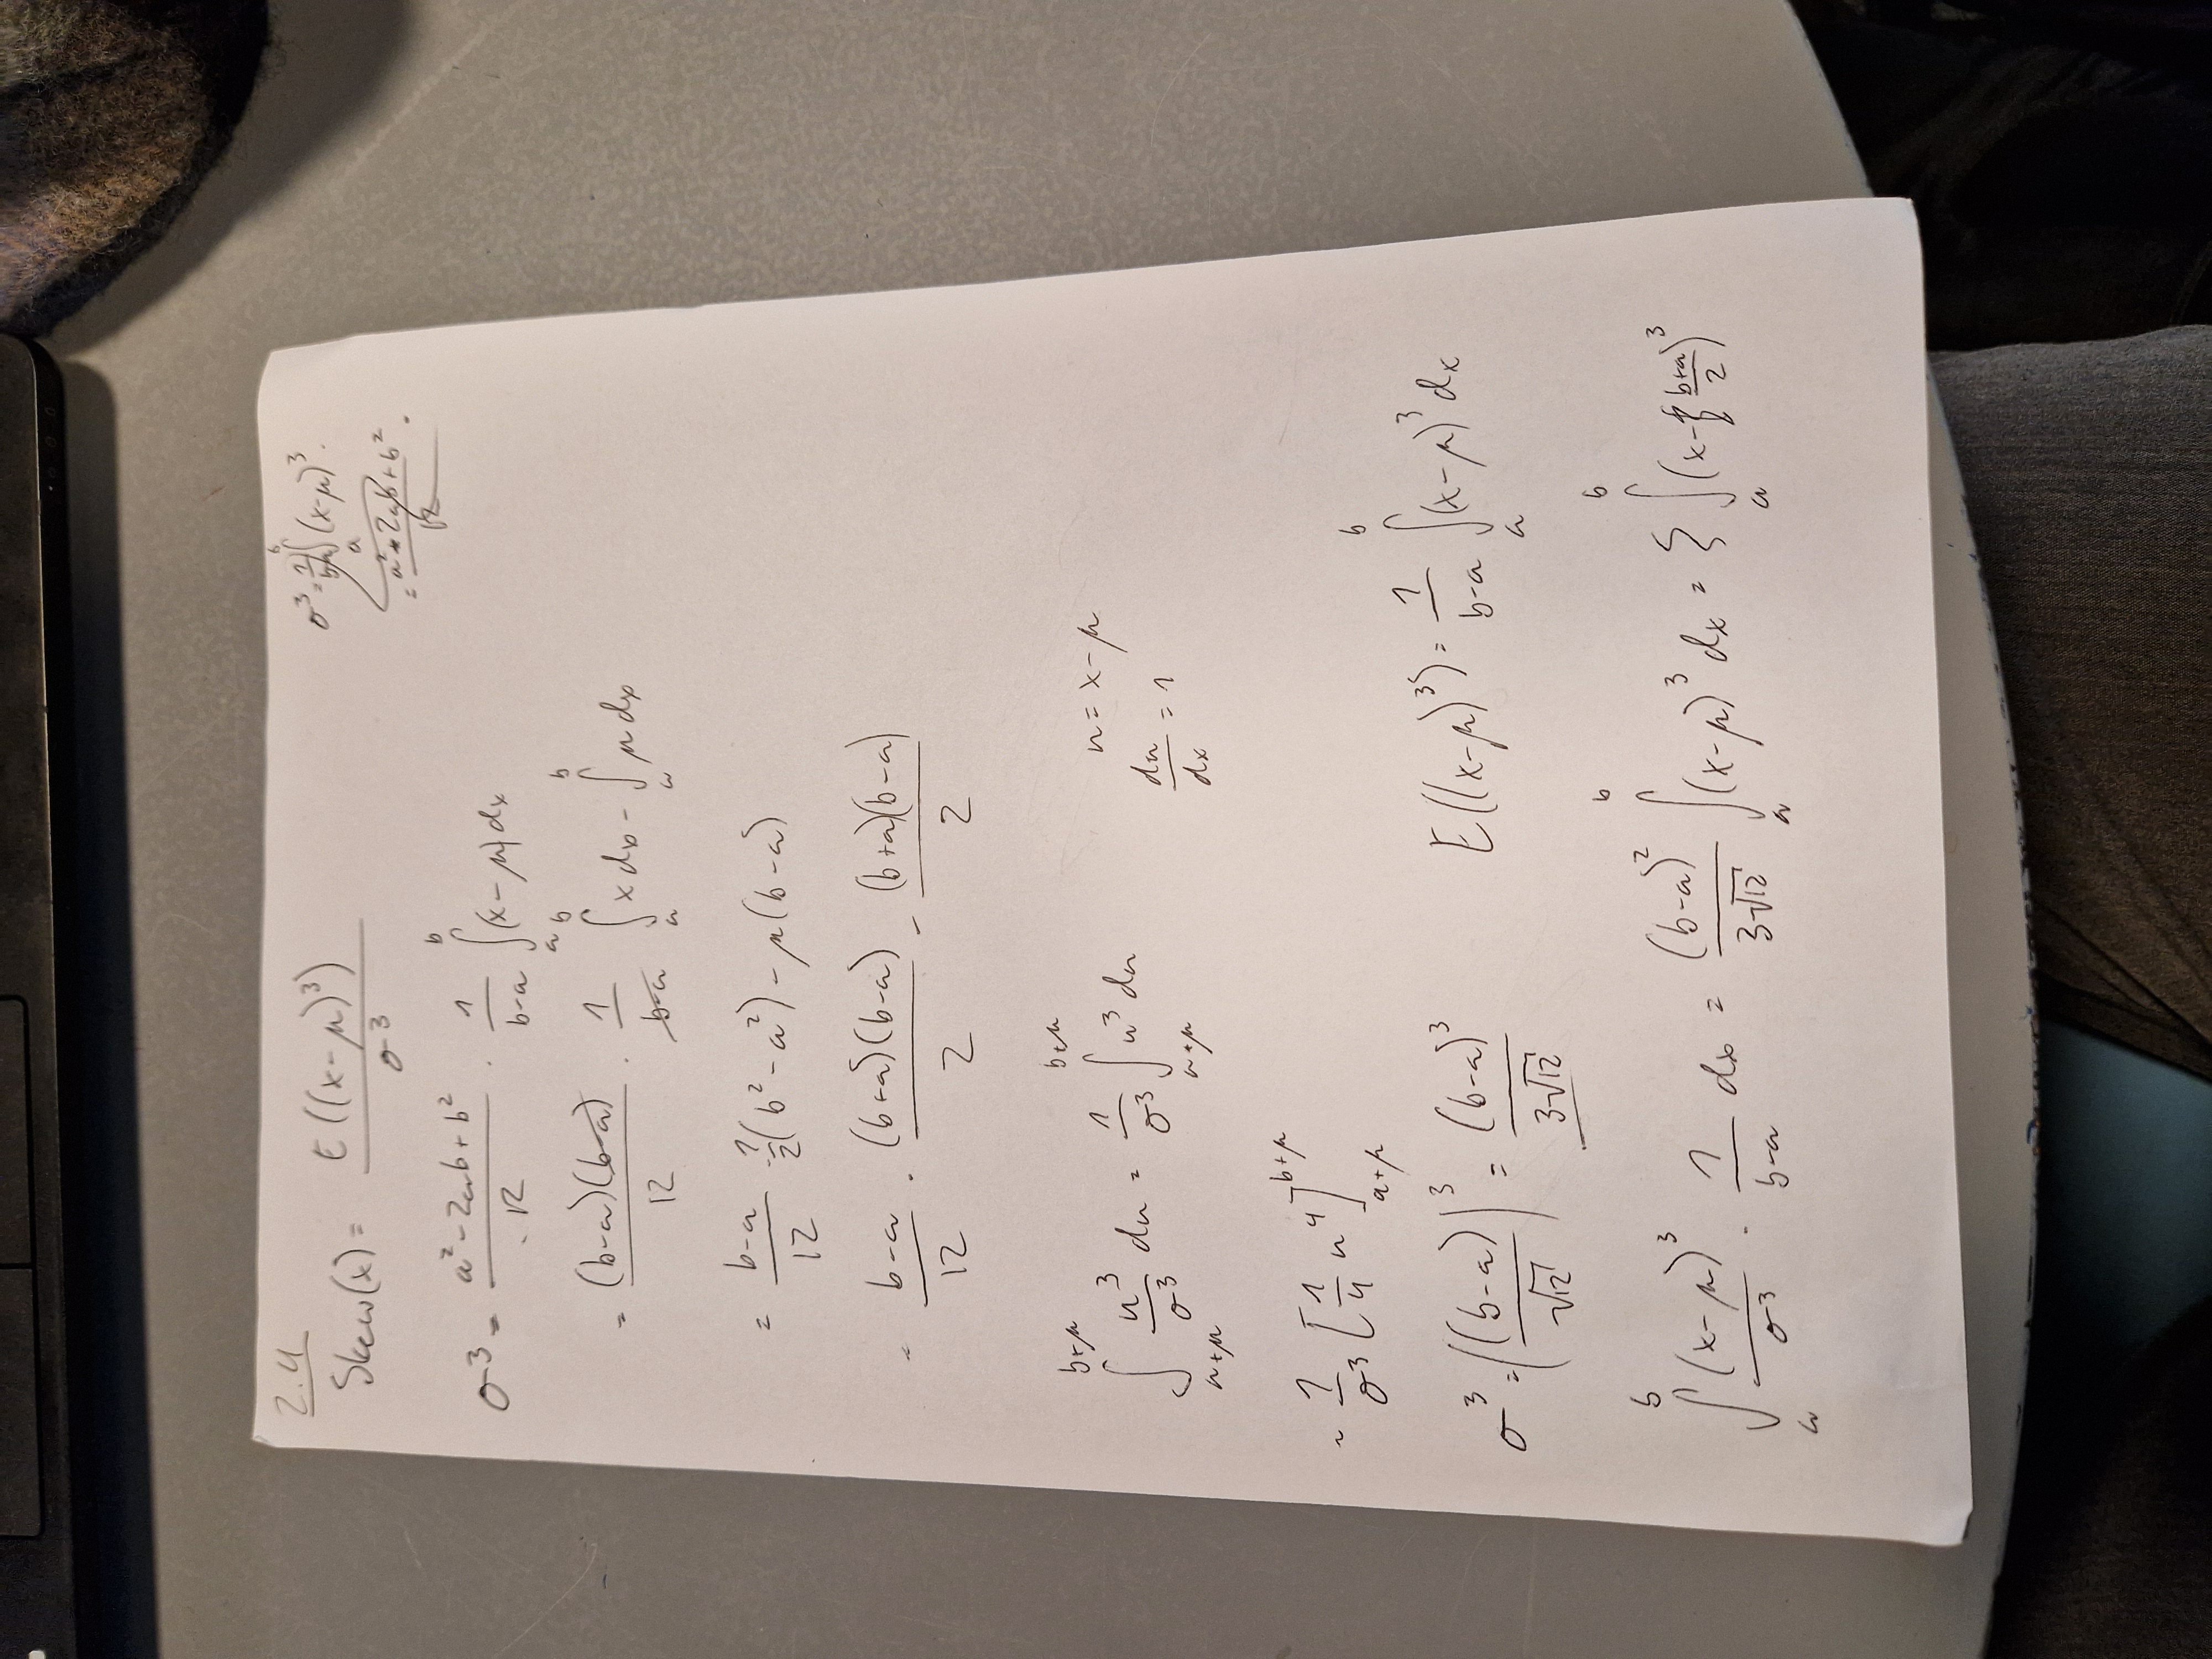 2.4
Skew(x) = E((x-μ)³) / σ³
σ³ = 1/(b-a) ∫_a^b (x-μ)³ ·
= (a² - 2ab + b²)/12 ·
σ³ = (a² - 2ab + b²)/12 · 1/(b-a) ∫_a^b (x-μ) dx
= (b-a)(b-a)/12 · 1/(b-a) ∫_a^b x dx - ∫_a^b μ dx
= (b-a)/12 · 1/2 (b² - a²) - μ(b-a)
= (b-a)/12 · (b+a)(b-a)/2 - (b+a)(b-a)/2
∫_{a+μ}^{b+μ} u³/σ³ du = 1/σ³ ∫_{a+μ}^{b+μ} u³ du
u = x - μ
du/dx = 1
~ 1/σ³ [1/4 u⁴]_{a+μ}^{b+μ}
σ³ = ((b-a)/√12)³ = (b-a)³/(3√12)
E((x-μ)³) = 1/(b-a) ∫_a^b (x-μ)³ dx
∫_a^b (x-μ)³/σ³ · 1/(b-a) dx = (b-a)²/(3√12) ∫_a^b (x-μ)³ dx = ξ ∫_a^b (x - (b+a)/2)³